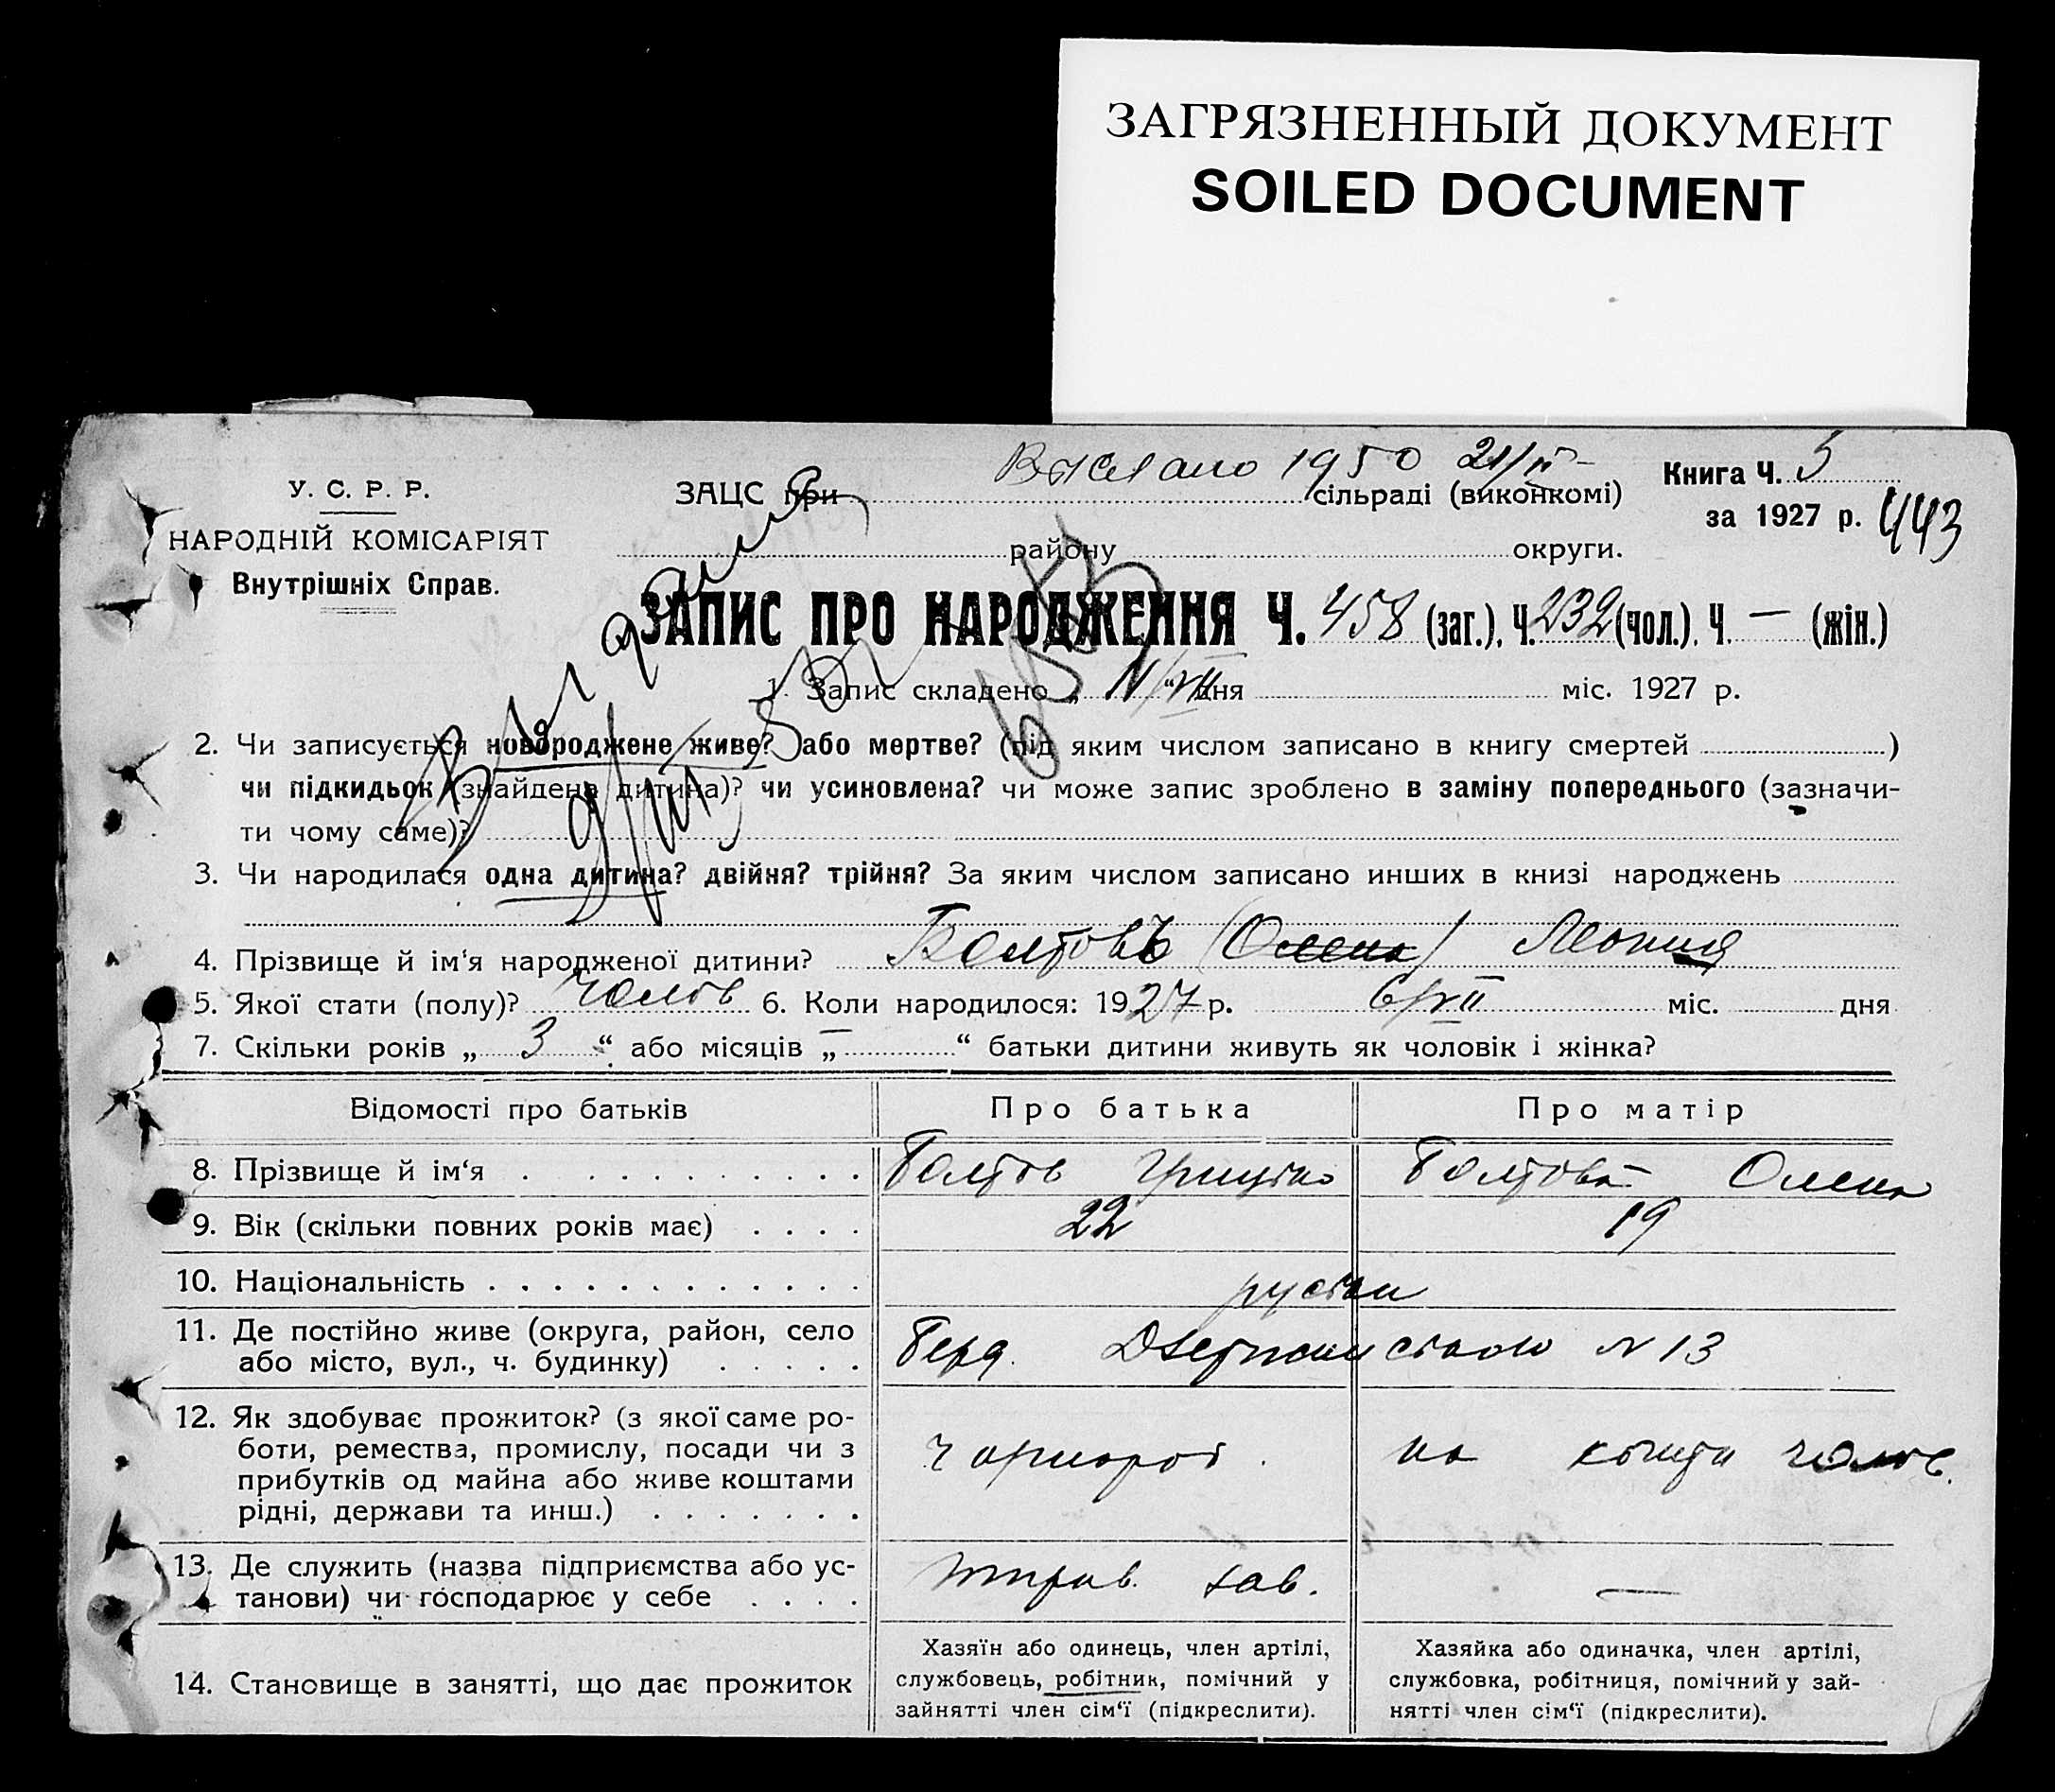 ЗАГРЯЗНЕННЫЙ ДОКУМЕНТ
SOILED DOCUMENT
Выслано 1950 21/II
Книга Ч. 5
У. С. Р. Р.
ЗАЦС при сільраді (виконкомі)
за 1927 р. 443
НАРОДНІЙ КОМІСАРІЯТ
району округи.
Внутрішніх Справ.
ЗАПИС ПРО НАРОДЖЕННЯ Ч. 458 (заг.), Ч. 232 (чол.), Ч. — (жін.)
1. Запис складено „ 11/VII “ дня міс. 1927 р.
2. Чи записується новороджене живе? або мертве? (під яким числом записано в книгу смертей )
чи підкидьок (знайдена дитина)? чи усиновлена? чи може запис зроблено в заміну попереднього (зазначи-
ти чому саме)?
3. Чи народилася одна дитина? двійня? трійня? За яким числом записано инших в книзі народжень
4. Прізвище й ім‘я народженої дитини? Болтовъ (Олена) Леонид
5. Якої стати (полу)? чолов 6. Коли народилося: 1927 р. 6/VII міс. дня
7. Скільки років „ 3 “ або місяців „ — “ батьки дитини живуть як чоловік і жінка?
Відомості про батьків Про батька Про матір
8. Прізвище й ім‘я Болтов Грицько Болтова Олена
9. Вік (скільки повних років має) 22 19
10. Національність руські
11. Де постійно живе (округа, район, село Берд. Дзержинською N 13
або місто, вул., ч. будинку)
12. Як здобуває прожиток? (з якої саме ро-
боти, ремества, промислу, посади чи з чорнороб. на кошти чолов.
прибутків од майна або живе коштами
рідні, держави та инш.)
13. Де служить (назва підприємства або ус- зав. —
танови) чи господарює у себе
Хазяїн або одинець, член артілі, Хазяйка або одиначка, член артілі,
14. Становище в занятті, що дає прожиток службовець, робітник, помічний у службовка, робітниця, помічний у зай-
зайнятті член сім‘ї (підкреслити). нятті член сім‘ї (підкреслити).